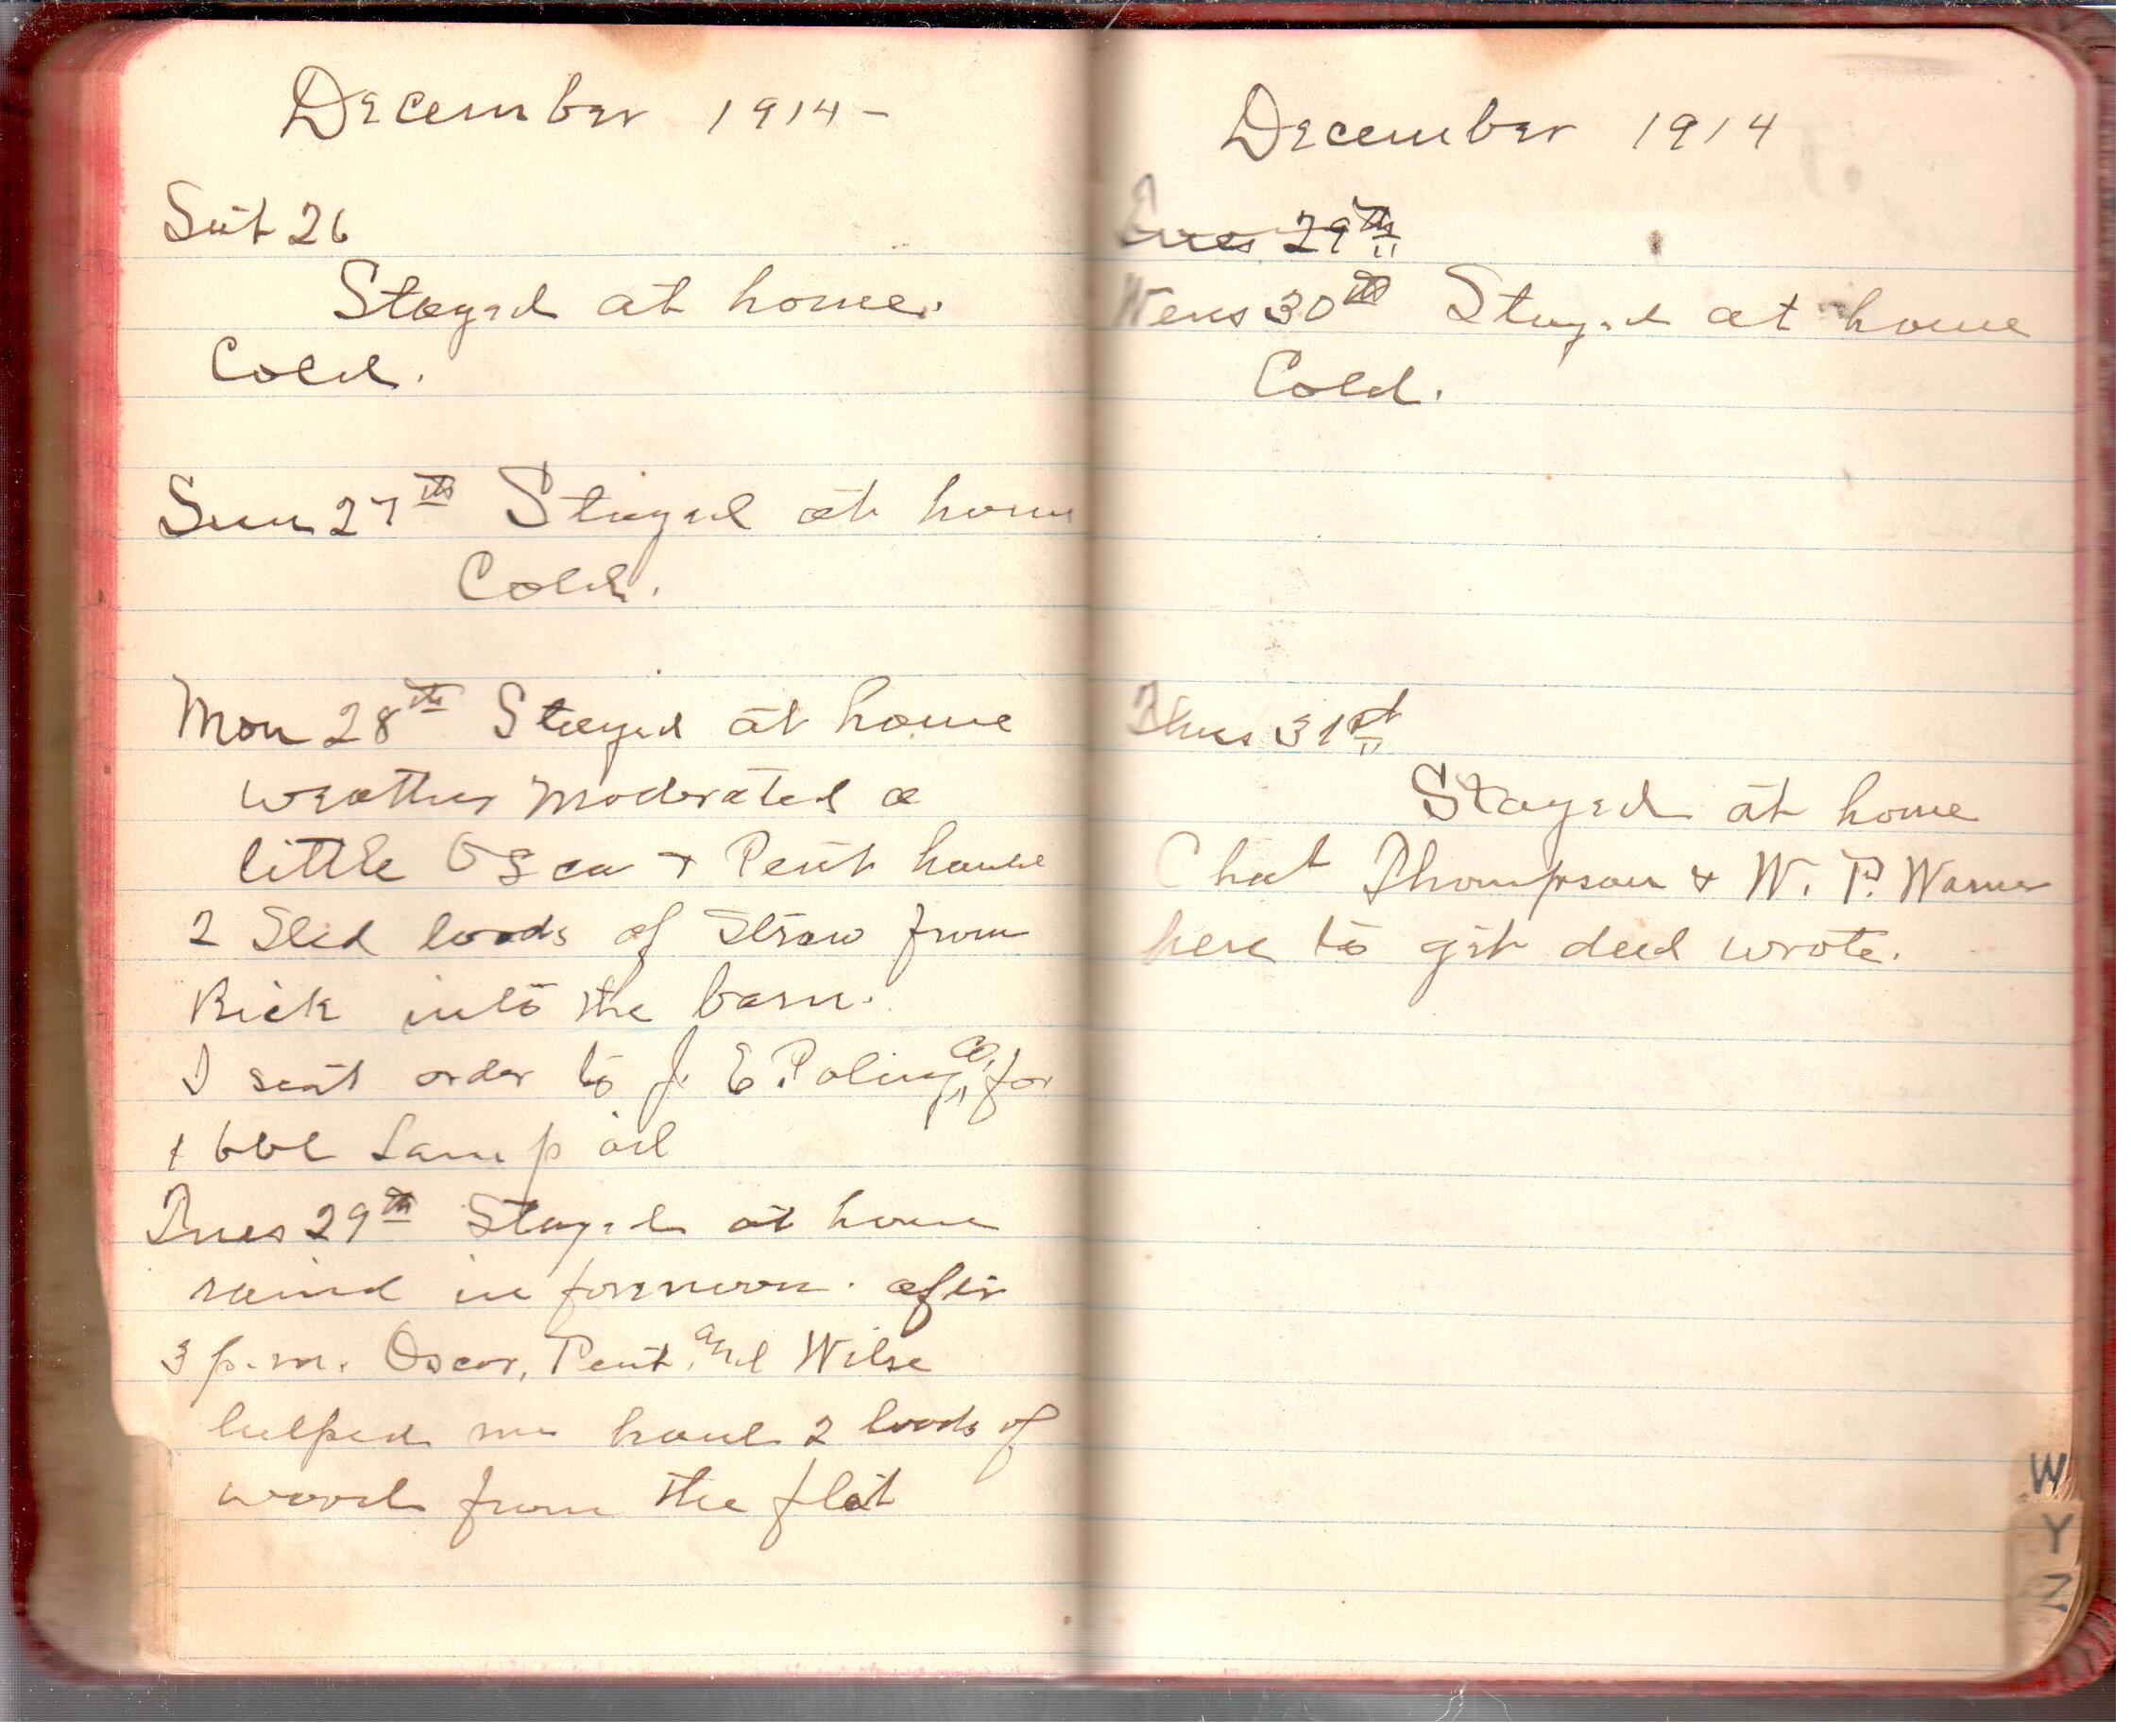 December 1914-
Sat 26
Stayed at home.
Cold.
Sun 27th Stayed at home
Cold.
Mon 28th Stayed at home
weather moderated a
little Oscar + Pent hauled
2 Sled loads of Straw from
Rick into the barn.
I sent order to J. E. Poling Co, for
1 bbl Lamp oil
Tues 29th Stayed at home
rained in forenoon. after
3 p.m. Oscar, Pent, and Wilse
helped me haul 2 loads of
wood from the flat
December 1914
Tues 29th
Wens 30th Stayed at home
Cold.
Thus 31st
Stayed at home
Chat Thompson + W. P. Warner
here to git deed wrote.
W
Y
Z